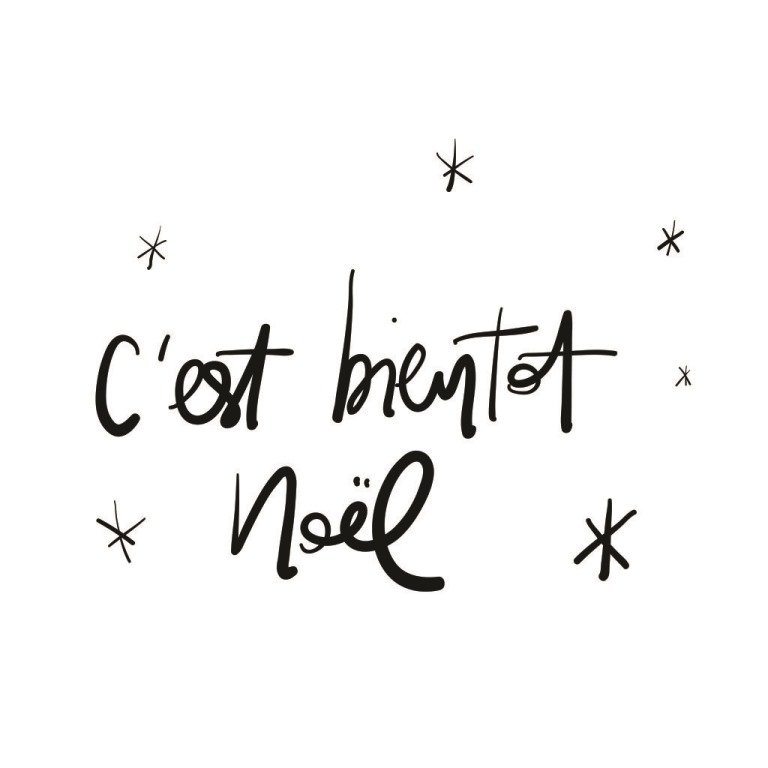 c'est bientot
noël